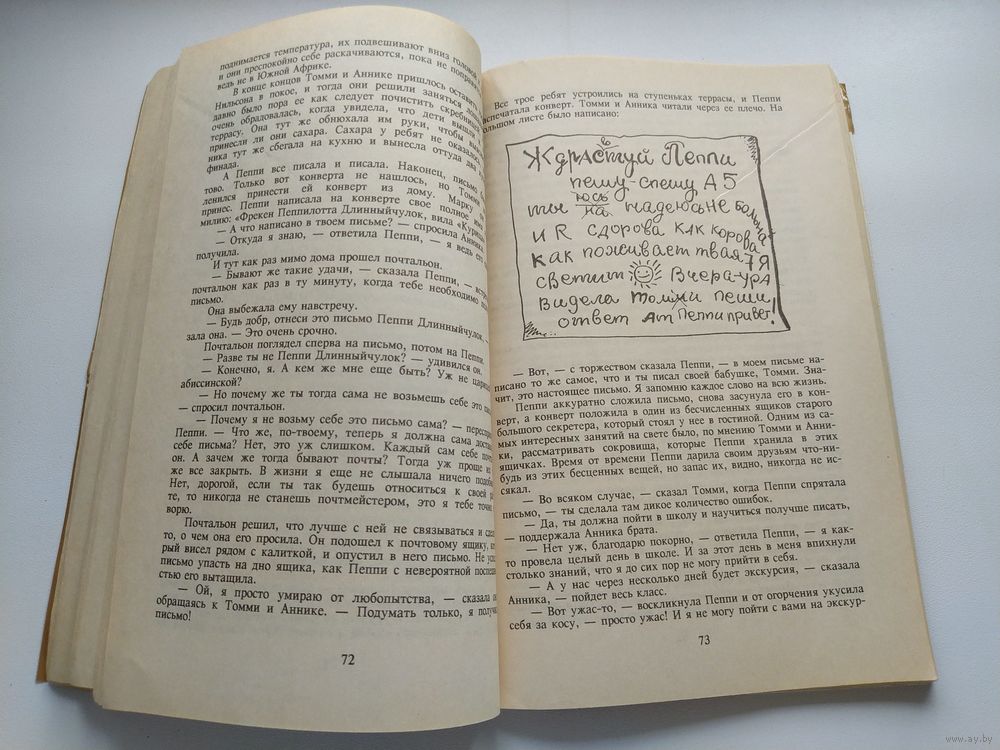 поднимается температура, их подвешивают вниз головой
и они преспокойно себе раскачиваются, пока не
ведь не в Южной Африке.
В конце концов Томми и Аннике пришлось
Нильсона в покое, и тогда они решили заняться
давно было пора ее как следует почистить
очень обрадовалась, когда увидела, что дети вышли
террасу. Она тут же обнюхала им руки, чтобы
принесли ли они сахара. Сахара у ребят не
ника тут же сбегала на кухню и вынесла оттуда два
финада.
А Пеппи все писала и писала. Наконец, письмо
тово. Только вот конверта не нашлось, но Томми
ленился принести ей конверт из дому. Марку
принес. Пеппи написала на конверте свое полное
милию: «Фрекен Пеппилотта Длинныйчулок, вила
— А что написано в твоем письме? — спросила
— Откуда я знаю, — ответила Пеппи, — я ведь его
получила.
И тут как раз мимо дома прошел почтальон.
— Бывают же такие удачи, — сказала Пеппи, —
почтальон как раз в ту минуту, когда тебе необходимо
письмо.
Она выбежала ему навстречу.
— Будь добр, отнеси это письмо Пеппи Длинныйчулок, —
зала она. — Это очень срочно.
Почтальон поглядел сперва на письмо, потом на Пеппи.
— Разве ты не Пеппи Длинныйчулок? — удивился он.
— Конечно, я. А кем же мне еще быть? Уж не
абиссинской?
— Но почему же ты тогда сама не возьмешь себе это
— спросил почтальон.
— Почему я не возьму себе это письмо сама? —
Пеппи. — Что же, по-твоему, теперь я должна сама
себе письма? Нет, это уж слишком. Каждый сам себе
он. А зачем же тогда бывают почты? Тогда уж проще их
же все закрыть. В жизни я еще не слышала ничего
Нет, дорогой, если ты так будешь относиться к своей
те, то никогда не станешь почтмейстером, это я тебе точно
ворю.
Почтальон решил, что лучше с ней не связываться и
то, о чем она его просила. Он подошел к почтовому ящику,
рый висел рядом с калиткой, и опустил в него письмо. Не
письмо упасть на дно ящика, как Пеппи с невероятной
стью его вытащила.
— Ой, я просто умираю от любопытства, — сказала
обращаясь к Томми и Аннике. — Подумать только, я
письмо!
72
Все трое ребят устроились на ступеньках террасы, и Пеппи
распечатала конверт. Томми и Анника читали через ее плечо. На
большом листе было написано:
в
Ждрастуй Пеппи
пешу-спешу А5
юсь
ты на надеюсьне больна
и Я сдорова как корова
как поживает твая 7Я
светит Вчера-ура
видела томми пеши
ответ Ат Пеппи привет!
— Вот, — с торжеством сказала Пеппи, — в моем письме на-
писано то же самое, что и ты писал своей бабушке, Томми. Зна-
чит, это настоящее письмо. Я запомню каждое слово на всю жизнь.
Пеппи аккуратно сложила письмо, снова засунула его в кон-
верт, а конверт положила в один из бесчисленных ящиков старого
большого секретера, который стоял у нее в гостиной. Одним из са-
мых интересных занятий на свете было, по мнению Томми и Анни-
ки, рассматривать сокровища, которые Пеппи хранила в этих
ящичках. Время от времени Пеппи дарила своим друзьям что-ни-
будь из этих бесценных вещей, но запас их, видно, никогда не ис-
сякал.
— Во всяком случае, — сказал Томми, когда Пеппи спрятала
письмо, — ты сделала там дикое количество ошибок.
— Да, ты должна пойти в школу и научиться получше писать,
— поддержала Анника брата.
— Нет уж, благодарю покорно, — ответила Пеппи, — я как-
то провела целый день в школе. И за этот день в меня впихнули
столько знаний, что я до сих пор не могу прийти в себя.
— А у нас через несколько дней будет экскурсия, — сказала
Анника, — пойдет весь класс.
— Вот ужас-то, — воскликнула Пеппи и от огорчения укусила
себя за косу, — просто ужас! И я не могу пойти с вами на экскур-
73
www.ay.by